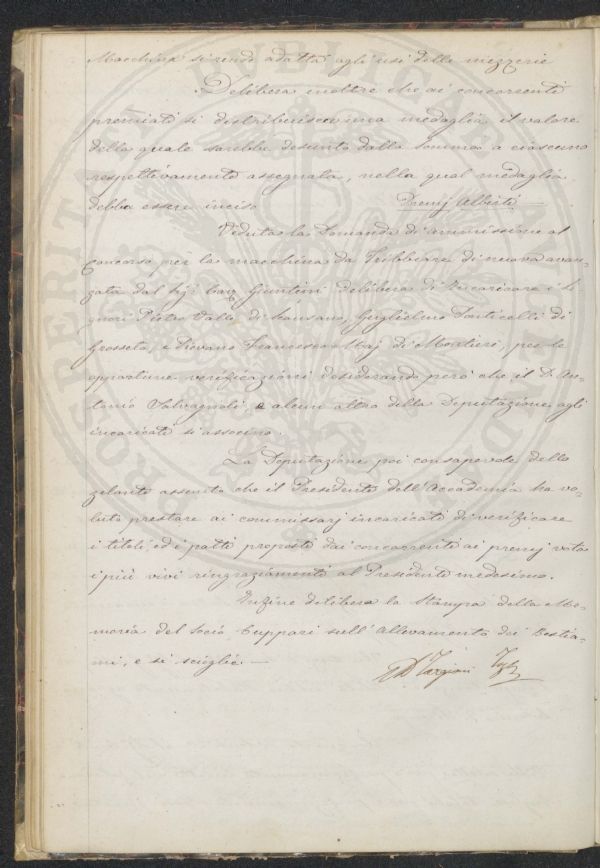 Macchina si rende adatta agli usi delle mezzerie
Delibera inoltre che ai concorrenti
premiati si distribuisca una medaglia il valore
della quale sarebbe desunto dalla somma a ciascuno
respettivamente assegnata, nella qual medaglia
debba essere inciso Premj Alberti
Veduta la Domanda di ammissione al
Concorso per la macchina da Trebbiare di nuova avan-
zata dal Giuntini delibera di incaricare i Si-
gnori Pietro Valle di Scansano, Guglielmo Ponticelli di
Grosseto, e Piovano Francesco Maj di Montieri, per le
opportune verificazioni desiderando però che il D. An-
tonio Salvagnoli, e alcuni altro della Deputazione agli
incaricati si associno.
La Deputazione poi consapevole dello
zelante assunto che il Presidente dell'Accademia ha vo-
luto prestare ai commissarj incaricati di verificare
i titoli, ed i patti proposti dai concorrenti ai premj vota
i più vivi ringraziamenti al Presidente medesimo.
Infine delibera la Stampa della Me-
moria del Socio Cuppari sull'Allevamento dei Bestia-
mi, e si scioglie.—
Targioni
PROSPERITATI PUBLICAE AUGENDAE